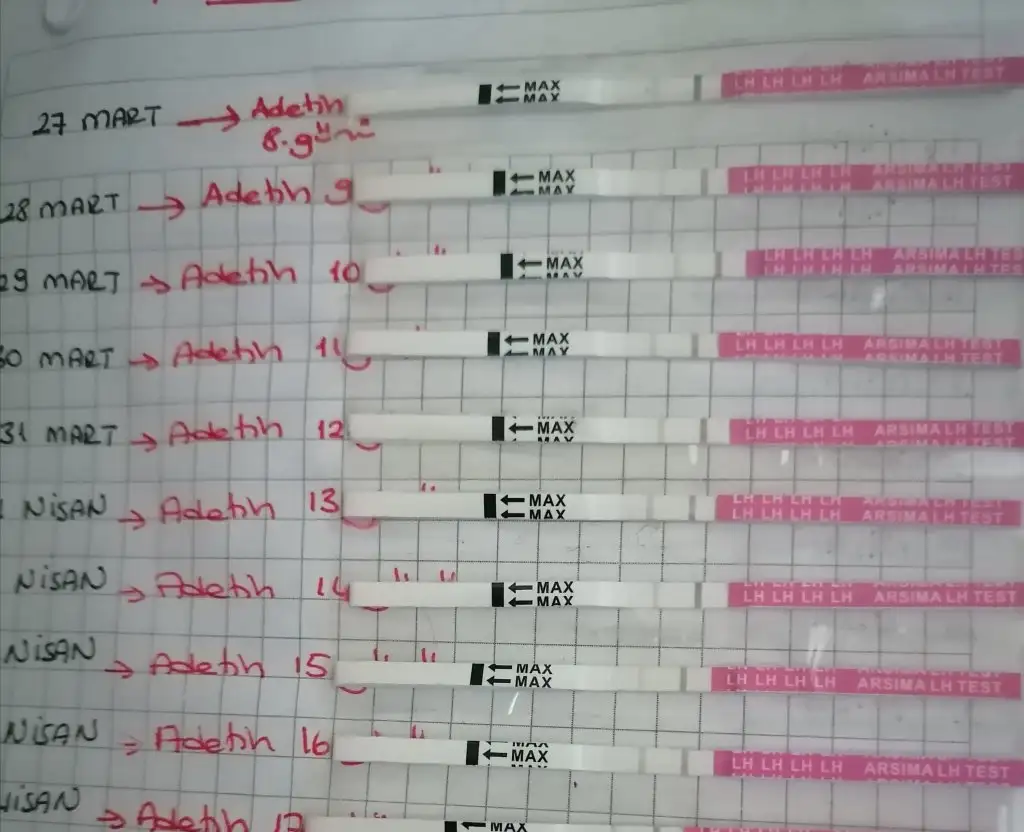 27 MART → Adetin ← MAX LH LH LH LH ARSIMA LH TEST
8. günü ← MAX
28 MART → Adetin 9 ← MAX LH LH LH LH ARSIMA LH TEST
← MAX LH LH LH LH ARSIMA LH TEST
29 MART → Adetin 10 ← MAX LH LH LH LH ARSIMA LH TES
MAX LH LH LH LH ARSIMA LH TES
30 MART → Adetin 11 ← MAX LH LH LH LH ARSIMA LH TEST
← MAX LH LH LH LH ARSIMA LH TEST
31 MART → Adetin 12 MAX
← MAX LH LH LH LH ARSIMA LH TEST
MAX
NİSAN → Adetin 13 ← MAX LH LH LH LH ARSIMA LH TEST
← MAX LH LH LH LH ARSIMA LH TEST
NİSAN → Adetin 14 ← MAX LH LH LH LH
← MAX LH LH LH LH ARSIMA LH TEST
NİSAN → Adetin 15 ← MAX
← MAX LH LH LH LH ARSIMA LH TEST
NİSAN = Adetin 16 MAX
← MAX LH LH LH LH ARSIMA LH TEST
NİSAN → Adetin 17 ← MAX